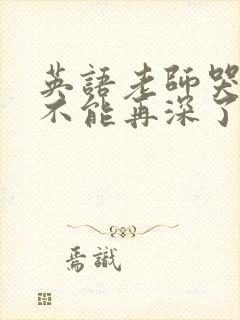 英語老師哭
不能再深了
焉識